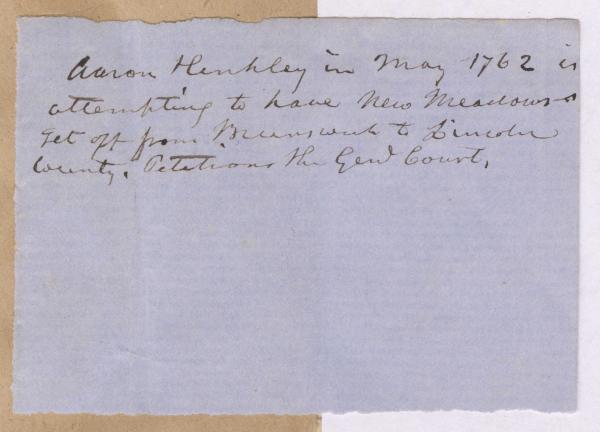 Aaron Hinkley in May 1762 is
attempting to have New Meadows
Set off from Brunswick to Lincoln
County. Petitions the Genl Court.